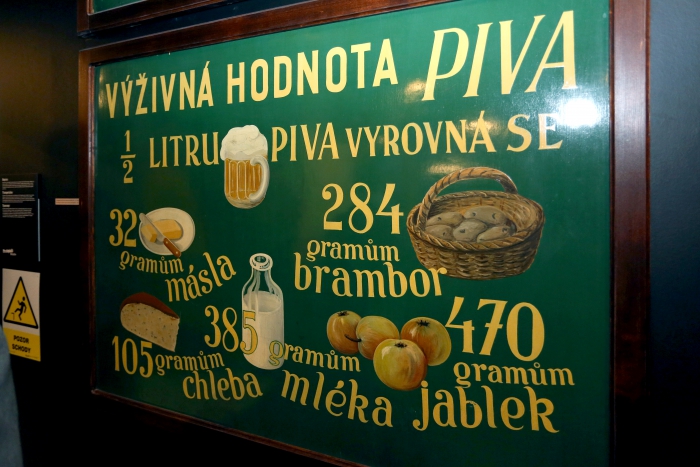 VÝŽIVNÁ HODNOTA PIVA
½ LITRU PIVA VYROVNÁ SE
32
gramům
másla
284
gramům
brambor
105 gramům
chleba
385
gramům
mléka
470
gramům
jablek
POZOR
SCHODY